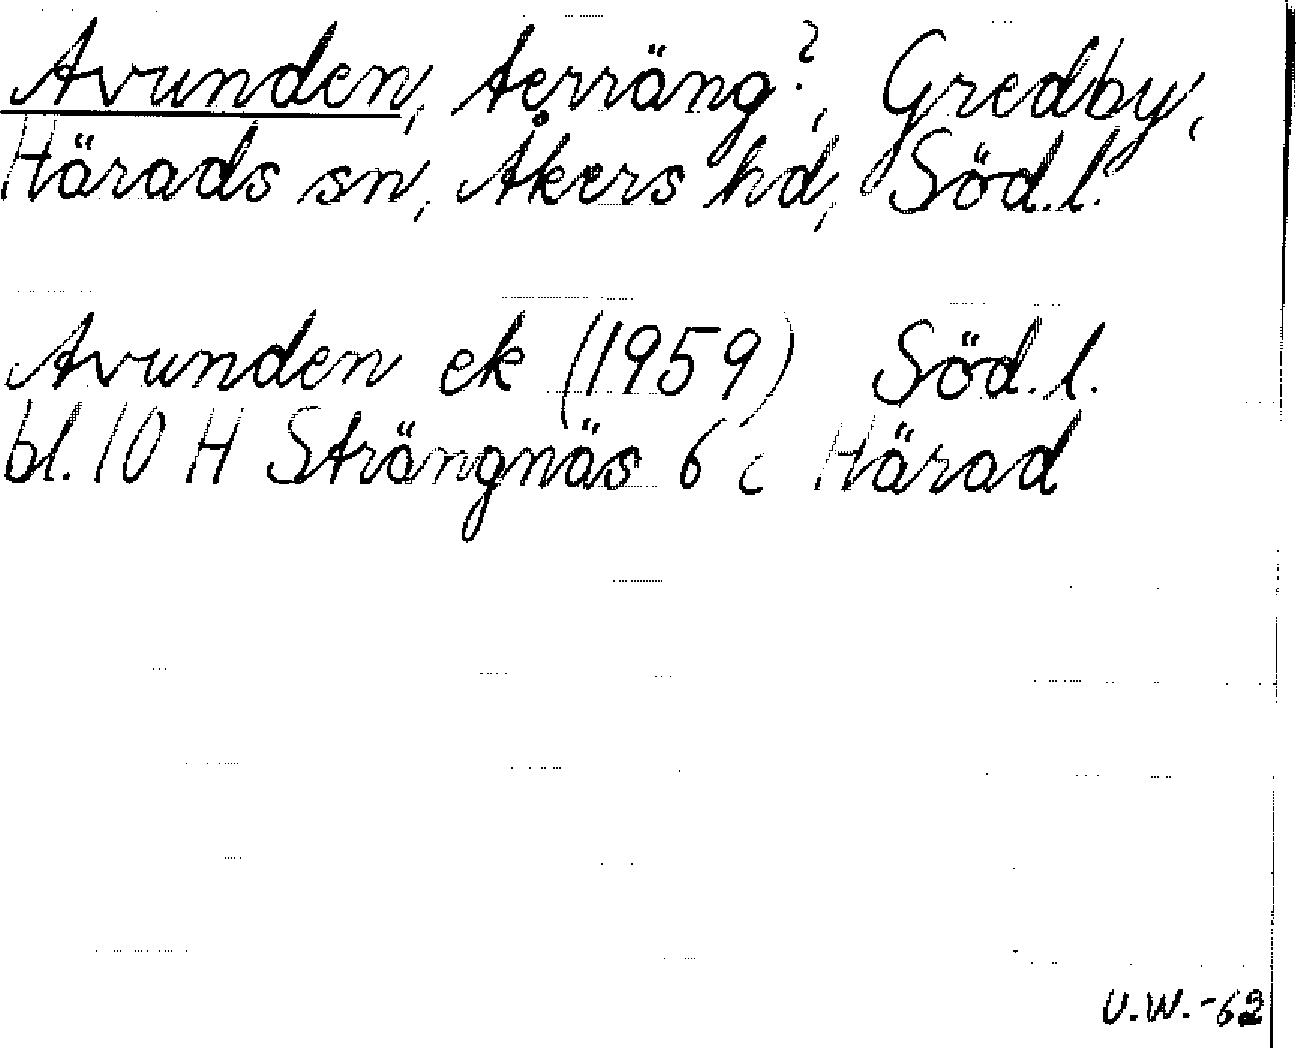 Avunden, terräng?, Gredby,
Härads sn, Åkers hd, Söd.l.
Avunden ek (1959) Söd.l.
bl. 10 H Strängnäs 6 c Härad
U.W.-62